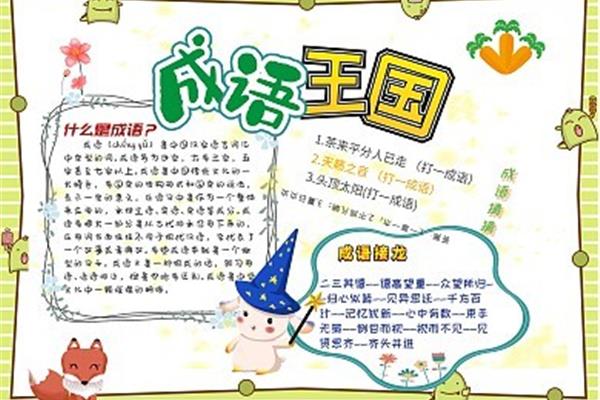 成语王国
什么是成语？
成语（chéng yǔ）是中国汉字语言词汇
中定型的词。成语多为四字，亦有三字，五
字甚至七字以上。成语是中国传统文化的一
大特色，有固定的结构形式和固定的说法，
表示一定的意义，在语句中是作为一个整体
来应用的，
成语有很大一部分是从古代相承沿用下来的，
了一个故事或者典故。有些成语本就是一个微
型的句子。成语又是一种现成的话，跟习用
语、谚语相近，但是也略有区别。成语是中国
文化中一颗璀璨的明珠。
1.茶来平分人已走（打一成语）
2.天籁之音（打一成语）
3.头顶太阳(打一成语)
成语猜猜
成语接龙
二三其德--德高望重--众望所归-
-归心似箭--见异思迁--千方百
计--记忆犹新--心中有数--束手
无策--侧目而视--视而不见--见
贤思齐--齐头并进